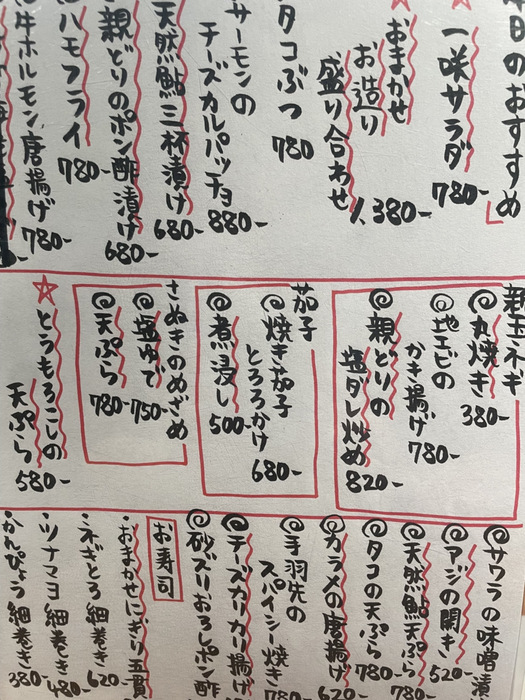 本日のおすすめ
一咲サラダ 780-
おまかせ
お造り
盛り合わせ 1,380-
タコぶつ 780
サーモンの
チーズカルパッチョ 880-
天然鮎三杯漬け 680-
親どりのポン酢漬け 680-
ハモフライ 780-
牛ホルモン唐揚げ 780-
君玉ネギ
丸焼き 380-
地エビの
かき揚げ 780-
親どりの
塩ダレ炒め 820-
茄子
焼き茄子
とろろかけ 680-
煮浸し 500-
さぬきのめざめ
塩ゆで 750-
天ぷら 780-
☆とうもろこしの
天ぷら 580-
サワラの味噌漬
アジの開き 520-
天然鮎天ぷら 780-
タコの天ぷら 780
カラメの唐揚げ 620-
手羽先の
スパイシー焼き 780
チーズカリカリ揚げ
砂ズリおろしポン酢
お寿司
おまかせにぎり五貫
ネぎとろ細巻き 620-
ツナマヨ細巻き 480-
かんぴょう細巻き 380-